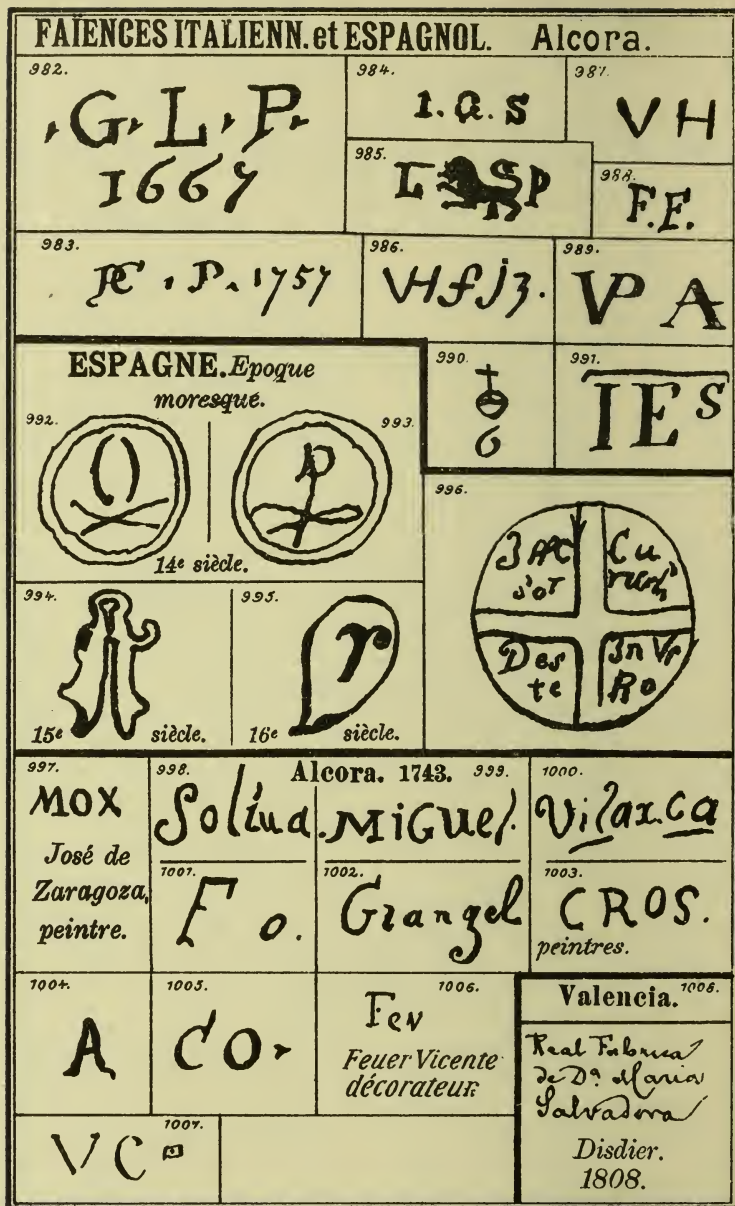 FAÏENCES ITALIENN. et ESPAGNOL. Alcora.
982.
G. L. P.
1667
984.
1. a. s
987.
V H
985.
L SP
988.
F.F.
983.
P. 1757
986.
VHfj3.
989.
VP A
990.
6
991.
IES
ESPAGNE. Epoque
moresque.
992.
993.
14e siècle.
994.
15e siècle.
995.
r
16e siècle.
996.
Cu
Des
te
Ro
Alcora. 1743.
997.
MOX
José de
Zaragoza,
peintre.
998.
Soliua.
999.
MiGUel.
1000.
Vilax.ca
1001.
F o.
1002.
Grangel
1003.
CROS.
peintres.
1004.
A
1005.
CO
1006.
Fev
Feuer Vicente
décorateur.
Valencia. 1008.
Real Fabrica
de Da. Maria
Salvadora
Disdier.
1808.
1007.
V C